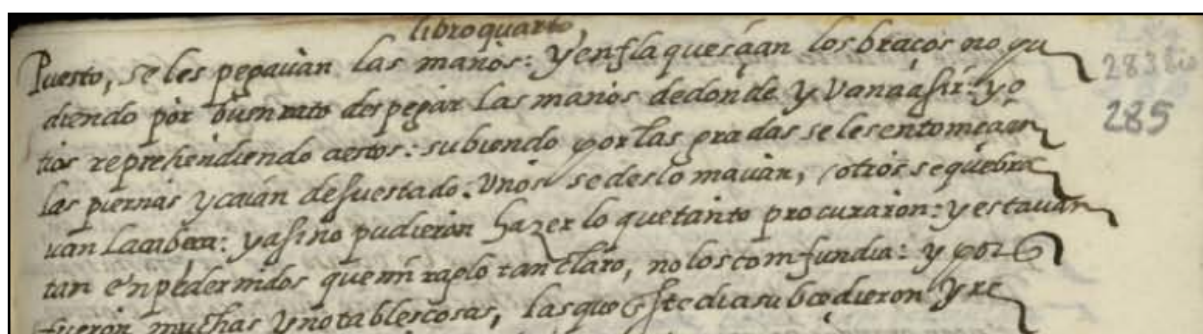 libro quarto
Puesto, se les pegauan las manos: y enflaqueçian los braços no pu
diendo por buen rato despegar las manos de donde yvan a asir: y o
tros reprehendiendo a estos: subiendo por las gradas se les entomeçian
las piernas y caian de su estado: Unos se deslomauan, otros se quebra
uan la cabeça: y asi no pudieron hazer lo que tanto procuraron: y estauan
tan enpedernidos que miraglo tan claro, no los comfundia: y porq
fueron muchas y notables cosas, las que este dia subcedieron y re
285